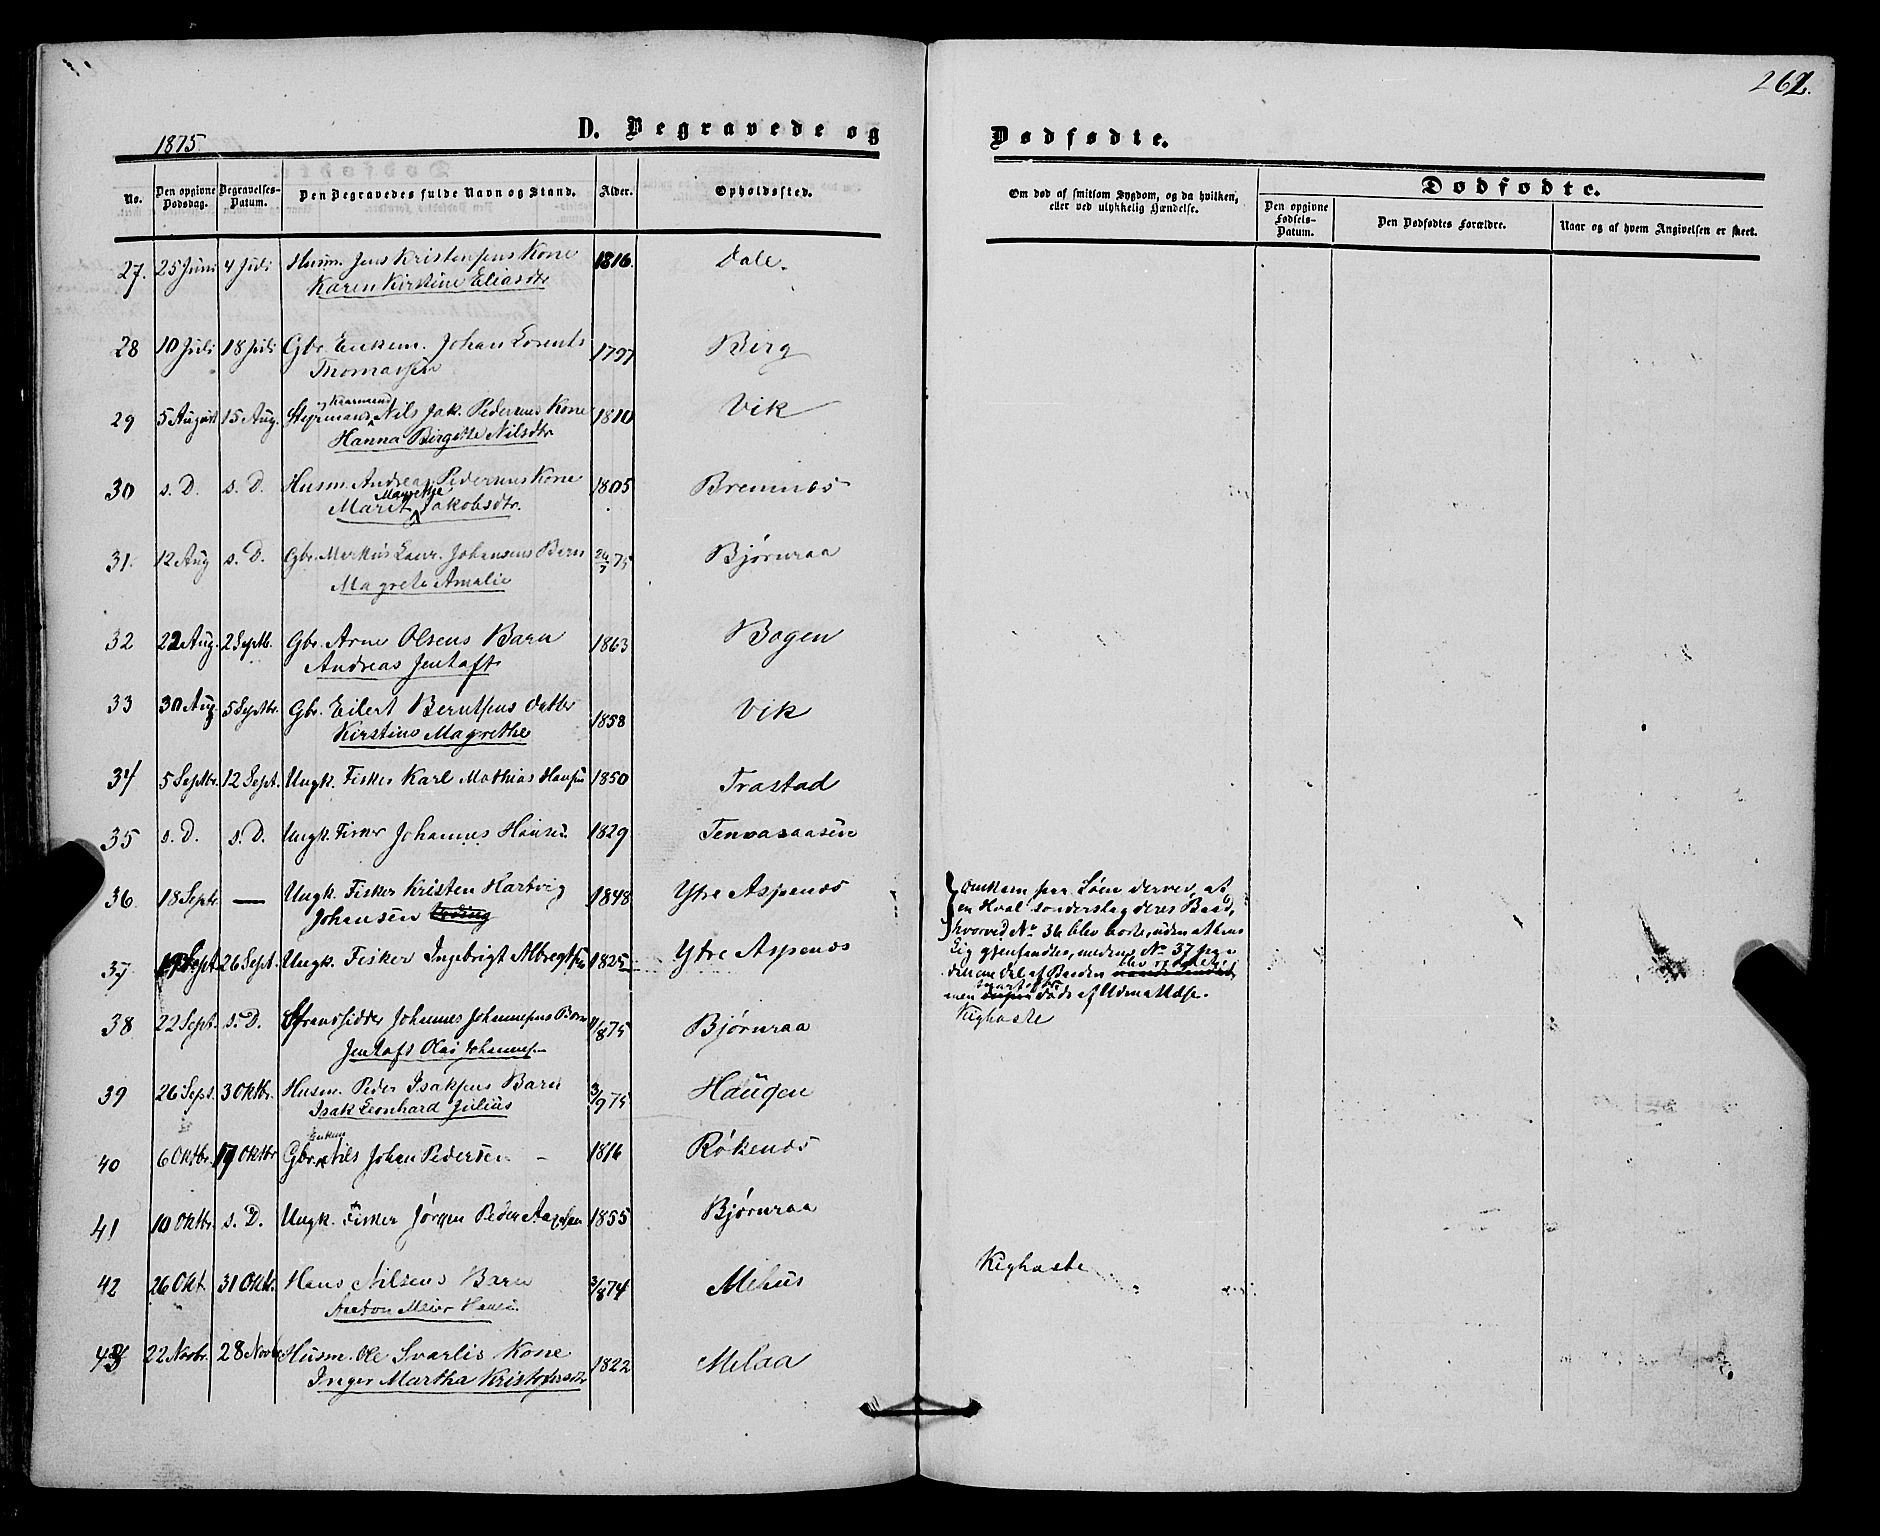 262.
1875.
D. Begravede og Dødfødte.
No.
Den opgivne Dødsdag.
Begravelses-Datum.
Den Begravedes fulde Navn og Stand.
Alder.
Opholdssted.
Om død af smitsom Sygdom, og da hvilken, eller ved ulykkelig Hændelse.
Dødfødte.
Den opgivne Fødsels-Datum.
Den Dødfødtes Forældre.
Naar og af hvem Angivelsen er skeet.
27. 25 Juni 4 Juli Husm. Jens Kristensens Kone 1816. Dale.
Karen Kirstine Eliasdtr
28 10 Juli 18 Juli Gbr. Enkem. Johan Lorents 1797 Berg
Thomassen
29 5 August 15 Aug. Styrmand og Kaarmand Nils Jak. Pedersens Kone 1810 Vik
Hanna Birgitte Nilsdtr
30 s. D. s. D. Husm. Andreas Pedersens Kone 1805 Bremnes
Marit Magrethe Jakobsdtr.
31. 12 Aug s. D. Gbr. Markus Laur. Johansens Barn 24/7 75 Bjørnraa
Magrete Amalie
32 22 Aug. 2 Septb. Gbr. Arne Olsens Barn 1863 Bogen
Andreas Jentoft
33 30 Aug. 5 Septbr. Gbr. Eilert Berntsens Datter 1858 Vik
Kirstine Magrethe
34 5 Septbr. 12 Sept. Ungk. Fisker Karl Mathias Hansen 1850 Trastad
35 s. D. s. D. Ungk. Fisker Johannes Hansen 1829 Tennaaasen
36 18 Septr. — Ungk. Fisker Kristen Hartvig 1848 Ytre Aspenes
Johansen
37 19 Sept. 26 Sept. Ungk. Fisker Ingebrigt Albregtsen 1825 Ytre Aspenes
Omkom paa Søen derved, at
en Hval sønderslag deres Baad,
hvorved No 36 blev borte, uden at hans
Lig gjenfandtes, medens No 37 paa
en Del af Baaden blev
men snart efter døde af Udmattelse.
38 22 Sept. s. D. Strandsidder Johannes Johannesens Barn 11/8 75 Bjørnraa Kighoste
Jentoft Olai Johannesen
39 26 Sept. 3 Oktbr. Husm. Peder Isaksens Barn 3/9 75 Haugen
Isak Leonhard Julius
40 6 Oktbr. 17 Oktbr Gbr. Enkem Nils Johan Pedersen 1816 Røkenes
41 10 Oktbr. s. D. Ungk. Fisker Jørgen Peder Aagesen 1855 Bjørnraa
42 26 Okt. 31 Oktb. Hans Nilsens Barn 3/8 74 Mehus Kighoste
Anton Meier Hansen
43 22 Novbr. 28 Novbr Husm. Ole Svarlis Kone 1822 Melaa
Inger Martha Kristofersdtr